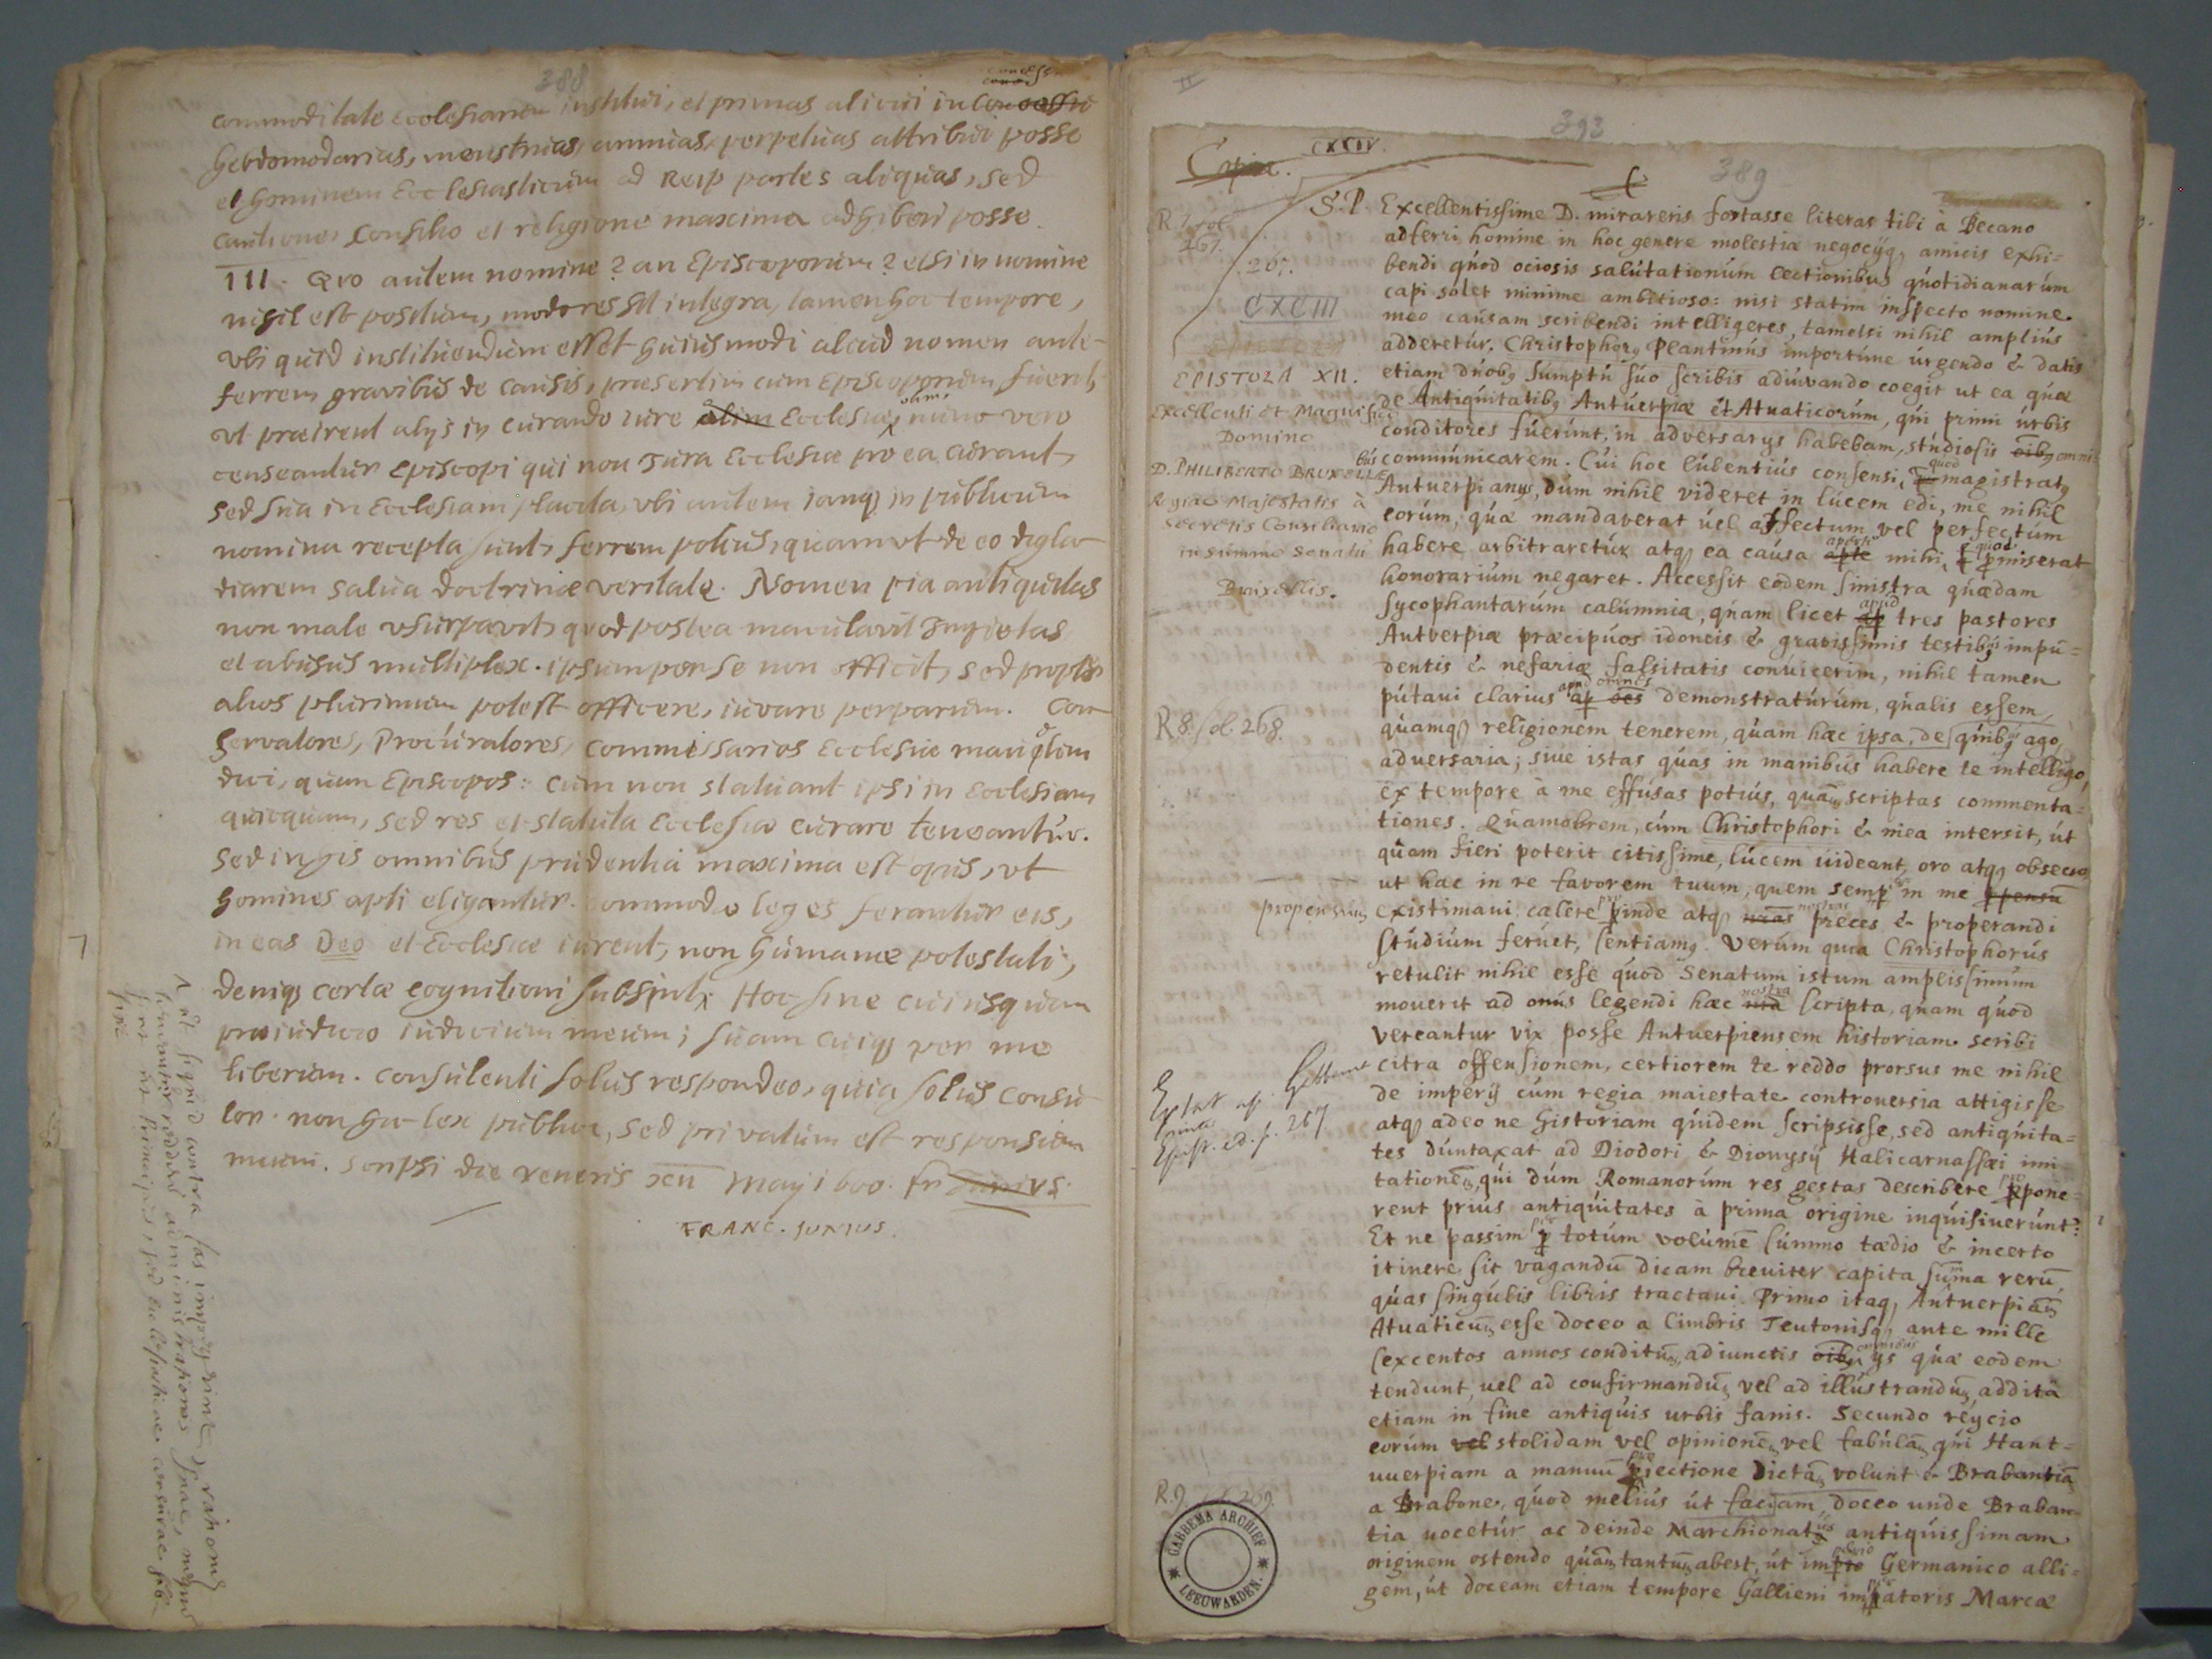 388
concess
commoditate ecclesiarum institui, et primas alicui in concessio
hebdomodarias, menstruas, annuas, perpetuas attribui posse
et hominem Ecclesiasticum ad Reip partes aliquas, sed
cautione, Consilio et religione maxima adhiberi posse.
III. Quo autem nomine? an Episcoporum? etsi in nomine
nihil est positum, modo res sit integra, tamen hoc tempore,
ubi quid instituendum esset huiusmodi aliud nomen ante-
ferrem gravibus de causis, praesertim cum Episcoporum fuerit
olim
ut praeirent alijs in curando iure olim Ecclesiae, nunc vero
censeantur Episcopi qui non Jura Ecclesiae pro ea curant,
sed sua in Ecclesiam placita, ubi autem iamq in publicum
nomina recepta sunt, ferrem potius, quam ut de eo digla-
diarem salva doctrinae veritate. Nomen pia antiquitas
non male usurpavit, quod postea maculavit Impietas
et abusus multiplex. ipsum per se non officit, sed propter
alios plurimum potest officere, iuvare perparum. Con
servatores, Procuratores, Commissarios Ecclesiae mauelim
dici, quam Episcopos: Cum non statuant ipsi in Ecclesiam
quicquam, sed res et statuta Ecclesiae curare teneantur.
Sed in his omnibus prudentia maxima est opus, ut
homines apti eligantur. commode leges ferantur eis,
in eas Deo et Ecclesiae iurent, non humanae potestati,
deniq certae cognitioni subsint. Hoc sine cuiusquam
praeiudicio iudicium meum; suam cuiq per me
liberum. Consulenti solus respondeo, quia solus consu
lor. non ha lex publica, sed privatum est responsum
meum. Scripsi die veneris XII Maij 1600. fr Junius.
FRANC. JUNIUS.
ut siquid contra fas impegerint, rationem
suarum reddant administrationes suae, neque
Principis, sed Ecclesiasticae censurae sub-
sint
393
389
CXCIV.
Copia.
R. 7. fol.
267.
267.
CXCIII
EPISTOLA XII.
Excellenti et Magnifico
Domino
D. PHILIBERTO BRUXELLIO
Regiae Majestatis à
Secretis Consiliario
in summo senatu
Bruxellis.
R 8. fol. 268.
propensum
Extat ap. Gabbema
Epist. ed. p. 267
R. 9. fol. 269.
S. P. Excellentissime D. mirareris fortasse literas tibi à Becano
adferri, homine in hoc genere molestiae negocijq amicis exhi=
bendi quod ociosis salutationum lectionibus quotidianarum
capi solet minime ambitioso: nisi statim inspecto nomine
meo causam scribendi intelligeres, tametsi nihil amplius
adderetur. Christophorus Plantinus importune urgendo & datis
etiam duobus sumptu suo scribis adiuvando coegit ut ea quae
de Antiquitatibus Antuerpiae et Atuaticorum, qui primi urbis
conditores fuerunt, in adversarijs habebam, studiosis oibus omni-
bus communicarem. Cui hoc lubentius consensi, quod magistratus
Antuerpianus, dum nihil videret in lucem edi, me nihil
eorum, quae mandaverat vel affectum vel perfectum
habere arbitraretur atq ea causa aperte mihi, quod promiserat
honorarium negaret. Accessit eodem sinistra quaedam
sycophantarum calumnia, quam licet apud tres pastores
Antverpiae praecipuos idoneis & gravissimis testibus impu=
dentis & nefariae falsitatis convicerim, nihil tamen
putaui clarius apud omnes demonstraturum, qualis essem,
quamq religionem tenerem, quam haec ipsa, de quibus ago,
adversaria; sive istas quas in manibus habere te intelligo,
ex tempore à me effusas potius, quam scriptas commenta=
tiones. Quamobrem, cum Christophori & mea intersit, ut
quam fieri poterit citissime, lucem uideant, oro atq obsecro
ut hac in re favorem tuum, quem semper in me ppensu
existimaui calere proinde atq nostras preces & properandi
studium feruet, sentiamus. Verum quia Christophorus
retulit nihil esse quod Senatum istum amplissimum
mouerit ad onus legendi haec nostra scripta, quam quod
vereantur vix posse Antuerpiensem historiam scribi
citra offensionem, certiorem te reddo prorsus me nihil
de imperij cum regia maiestate controversia attigisse
atq adeo ne historiam quidem scripsisse, sed antiquita=
tes duntaxat ad Diodori & Dionysij Halicarnassaei imi
tationem, qui dum Romanorum res gestas describere propone=
rent prius antiquitates à prima origine inquisiuerunt:
Et ne passim per totum volumē summo taedio & incerto
itinere sit vagandū dicam breuiter capita summa rerū
quas singulis libris tractaui. Primo itaq Antuerpiam
Atuaticum esse doceo a Cimbris Teutonisq ante mille
sexcentos annos conditum, adiunctis omnibus ijs quae eodem
tendunt, uel ad confirmandum vel ad illustrandum, addita
etiam in fine antiquis urbis fanis. Secundo reijcio
eorum vel stolidam vel opinionem vel fabulam, qui Hant=
uuerpiam a manuū proiectione dictam volunt & Brabantiā
a Brabone, quod melius ut faciam, doceo unde Braban=
tia uocetur ac deinde Marchionatus antiquissimam
originem ostendo quam tantum abest, ut imperio Germanico alli=
gem, ut doceam etiam tempore Gallieni imperatoris Marcae
GABBEMA ARCHIEF
LEEUWARDEN.